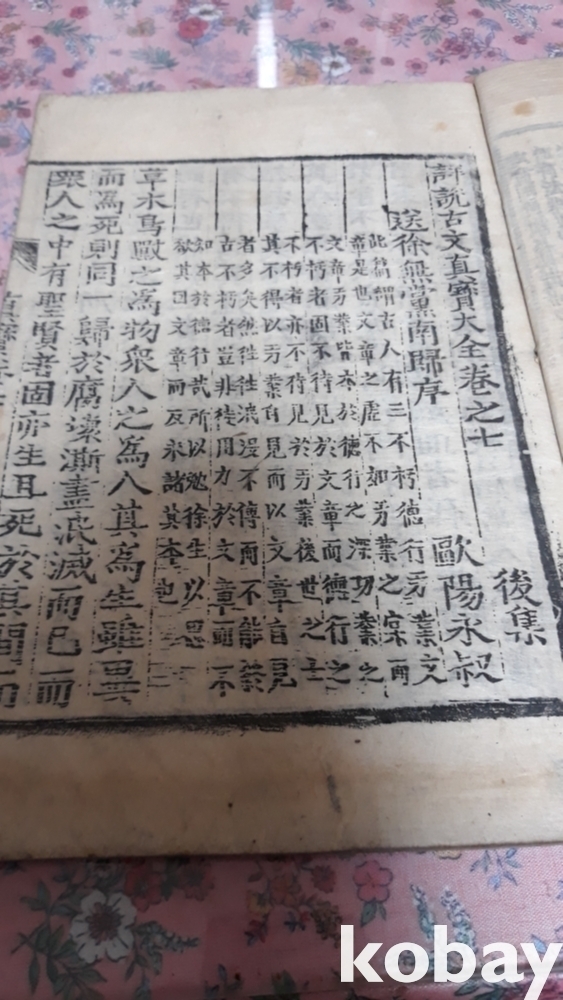 詳說古文真寶大全卷之七
後集
送徐無黨南歸序 歐陽永叔
此篇謂古人有三不朽德行功業文
章是也文章之虛不如功業之實而
文章功業皆本於德行之深功業之
不朽者固不待見於文章而德行之
不朽者亦不待見於功業後世之士
其不得以功業自見而以文章自見
者多矣然徃徃泯沒不傳而不能
古不朽者豈非徒用力於文章而不
知本於德行哉所以勉徐生以思
欲其因文章而反求諸其本也
草木鳥獸之為物眾人之為人其為生雖異
而為死則同一歸於腐壞澌盡泯滅而已而
眾人之中有聖賢者固亦生且死於其間而
kobay